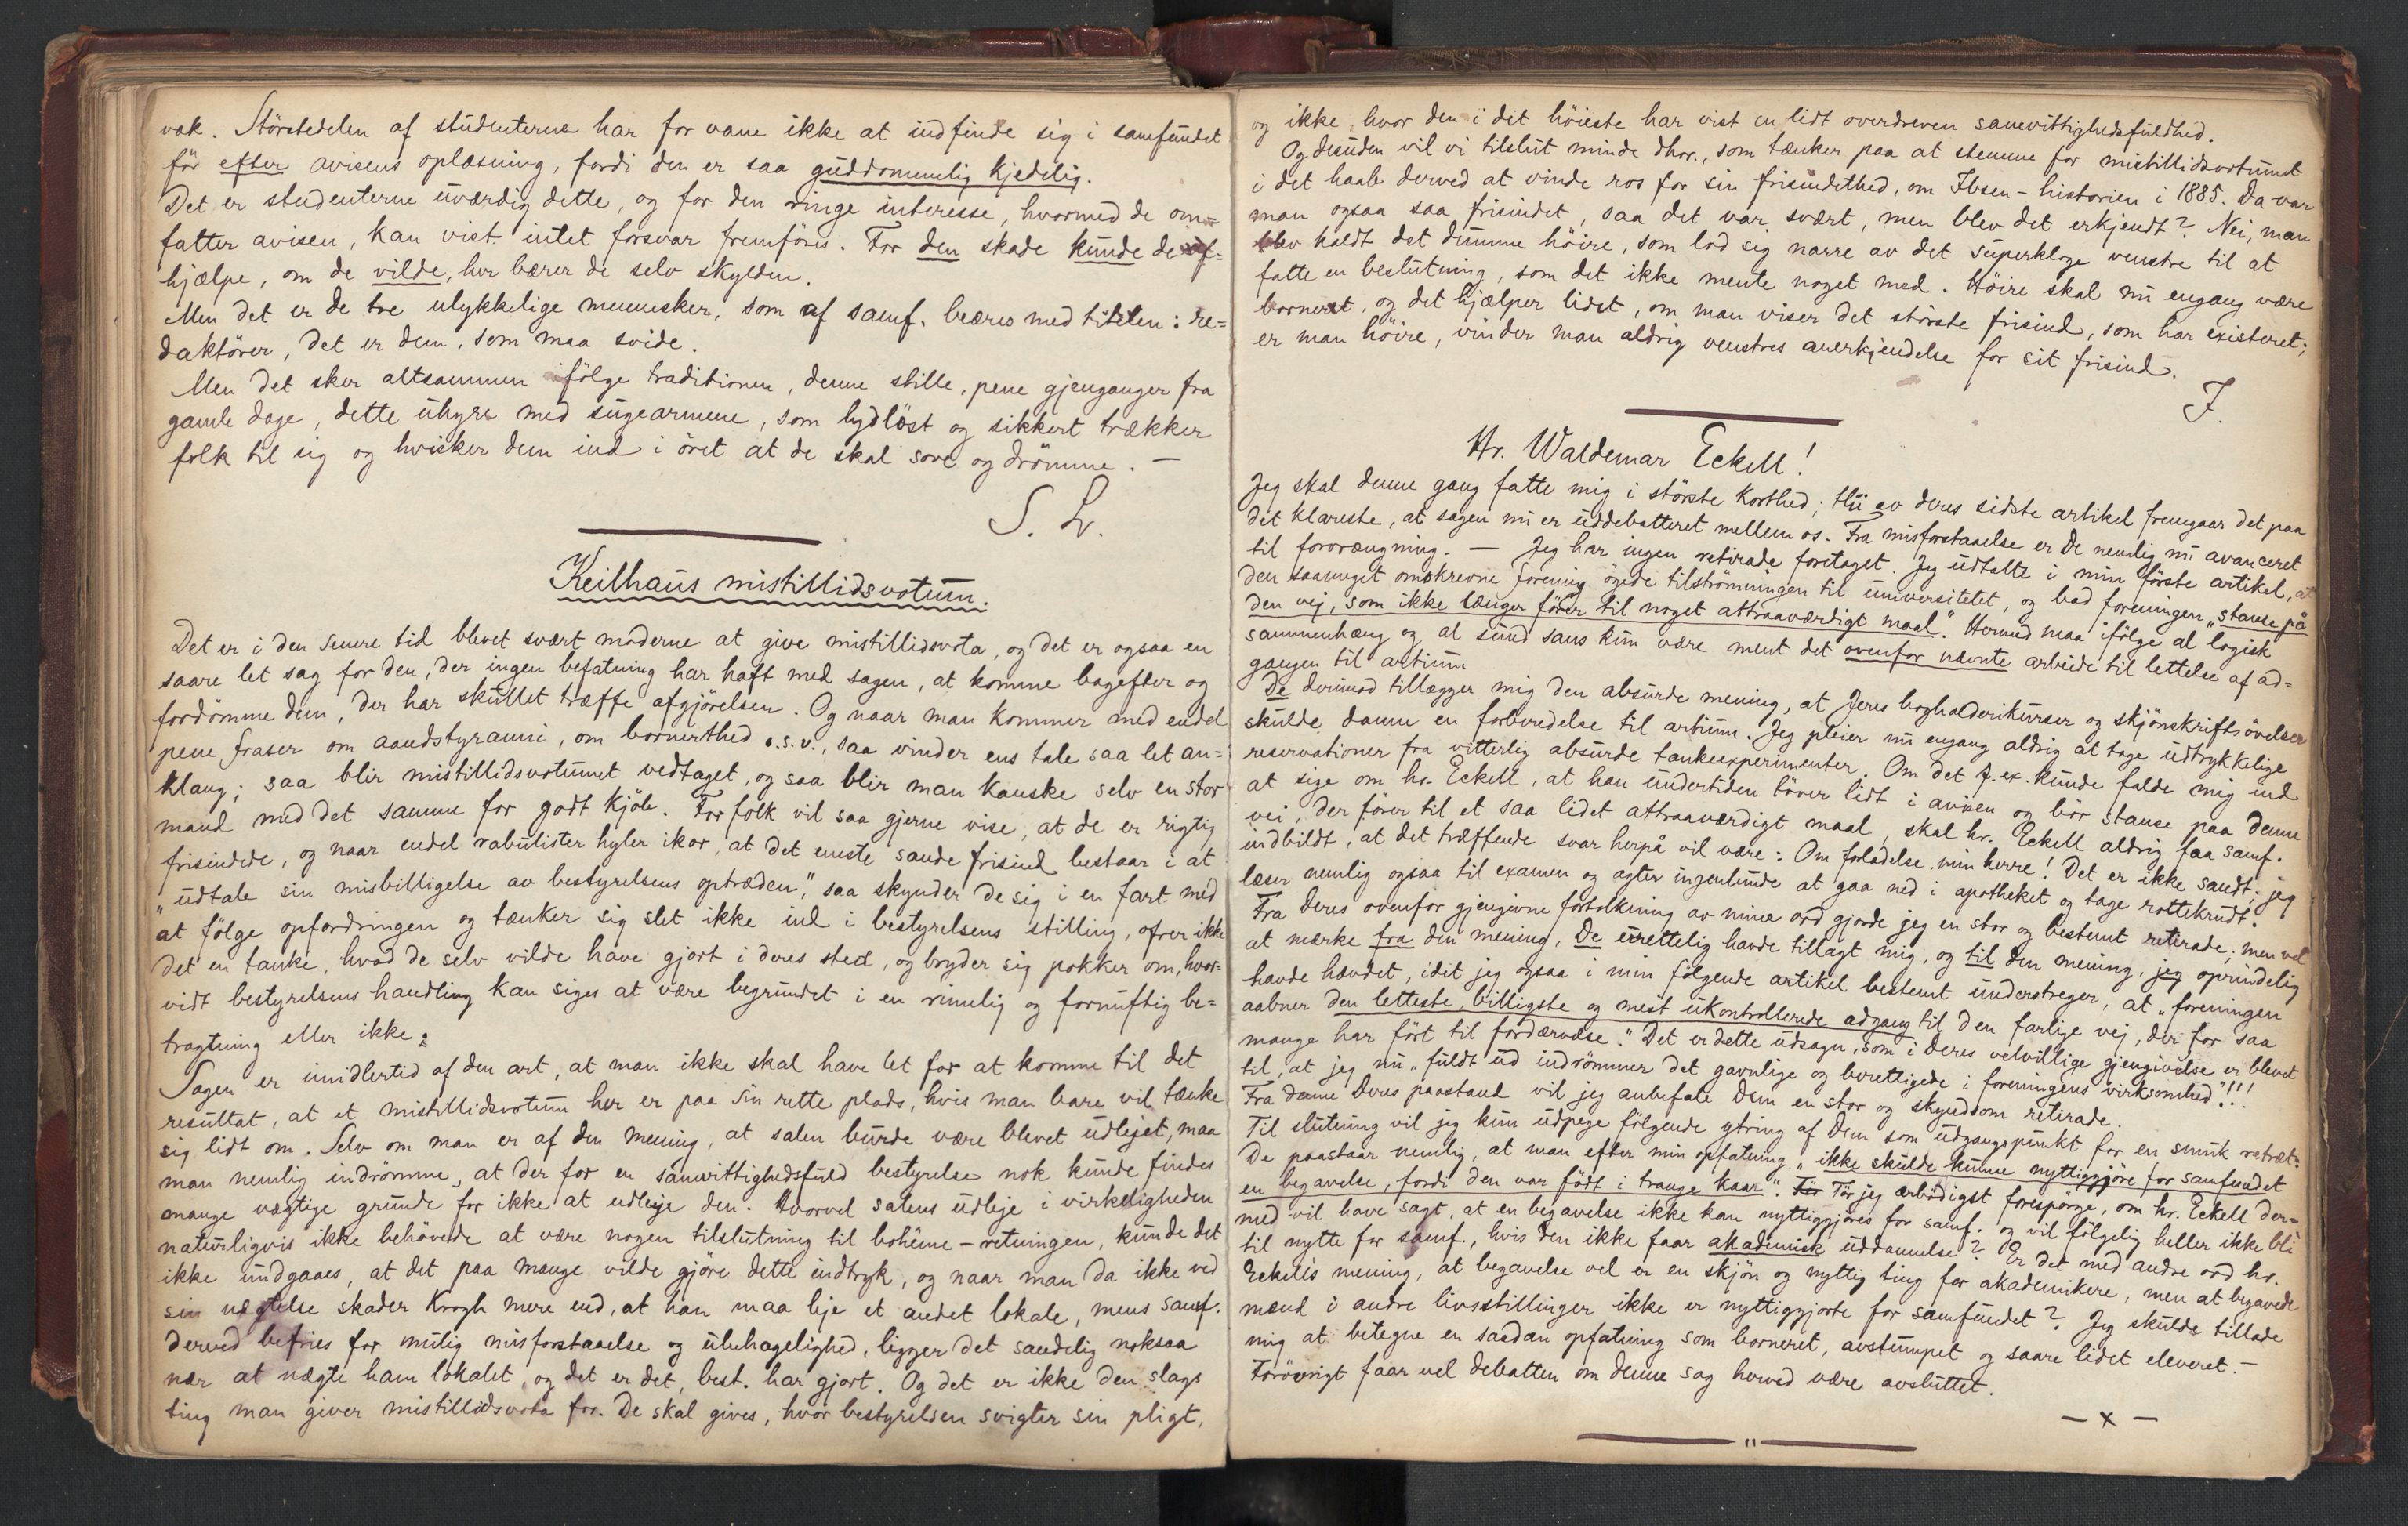 vak. Störstedelen af studenterne har for vane ikke at indfinde sig i samfundet
för efter avisens oplæsning, fordi den er saa guddommelig kjedelig.
Det er studenterne uværdig dette, og for den ringe interesse, hvormed de om=
fatter avisen, kan vist intet forsvar fremföres. For den skade kunde de af=
hjælpe, om de vilde, her bærer de selv skylden.
Men det er de tre ulykkelige mennesker, som af samf. beæres med titelen: re=
daktörer, det er dem, som maa svide.
Men det sker altsammen ifölge traditionen, denne stille, pene gjenganger fra
gamle dage, dette uhyre med sugearmene, som lydlöst og sikkert trækker
folk til sig og hvisker dem ind i öret at de skal sove og drömme. —
S. L.
Keilhaus mistillidsvotum.
Det er i den senere tid blevet svært moderne at give mistillidsvota, og det er ogsaa en
saare let sag for den, der ingen befatning har haft med sagen, at komme bagefter og
fordömme dem, der har skullet træffe afgjörelsen. Og naar man kommer med endel
pene fraser om aandstyranni, om bornerthed o.s.v., saa vinder ens tale saa let an=
klang; saa blir mistillidsvotumet vedtaget, og saa blir man kanske selv en stor
mand med det samme for godt kjöb. For folk vil saa gjerne vise, at de er rigtig
frisindede, og naar endel rabulister hyler i kor, at det eneste sande frisind bestaar i at
"udtale sin misbilligelse av bestyrelsens optræden", saa skynder de sig i en fart med
at fölge opfordringen og tænker sig slet ikke ind i bestyrelsens stilling, ofrer ikke
det en tanke, hvad de selv vilde have gjort i deres sted, og bryder sig pokker om, hvor=
vidt bestyrelsens handling kan siges at være begrundet i en rimelig og fornuftig be=
tragtning eller ikke.
Sagen er imidlertid af den art, at man ikke skal have let for at komme til det
resultat, at et mistillidsvotum her er paa sin rette plads, hvis man bare vil tænke
sig lidt om. Selv om man er af den mening, at salen burde være blevet udlejet, maa
man nemlig indrömme, at der for en samvittighedsfuld bestyrelse nok kunde findes
mange vægtige grunde for ikke at udleje den. Hvorvel salens udleje i virkeligheden
naturligvis ikke behövede at være nogen tilslutning til bohême-retningen, kunde det
ikke undgaaes, at det paa mange vilde gjöre dette indtryk, og naar man da ikke ved
sin nægtelse skader Krogh mere end, at han maa leje et andet lokale, mens samf.
derved befries for mulig misforstaaelse og ubehagelighed, ligger det sandelig noksaa
nær at nægte ham lokalet, og det er det, best. har gjort. Og det er ikke den slags
ting man giver mistillidsvota for. De skal gives, hvor bestyrelsen svigter sin pligt,
og ikke, hvor den i det höieste har vist en lidt overdreven samvittighedsfuldhed.
Og desuden vil vi tilslut minde dhrr., som tænker paa at stemme for mistillidsvotumet
i det haab derved at vinde ros for sin frisindethed, om Ibsen-historien i 1885. Da var
man ogsaa saa frisindet, saa det var svært, men blev det erkjendt? Nei, man
blev kaldt det dumme höire, som lod sig narre av det superkloge venstre til at
fatte en beslutning, som det ikke mente noget med. Höire skal nu engang være
bornert, og det hjælper lidet, om man viser det störste frisind, som har existeret;
er man höire, vinder man aldrig venstres anerkjendelse for sit frisind.
J.
Hr. Waldemar Eckell!
Jeg skal denne gang fatte mig i störste korthed; thi av deres sidste artikel fremgaar det paa
det klareste, at sagen nu er uddebatteret mellem os. Fra misforstaaelse er De nemlig nu avanceret
til forvrængning. — Jeg har ingen retirade foretaget. Jeg udtalte i min förste artikel, at
den saameget omskrevne forening ögede tilströmningen til universitetet, og bad foreningen „stanse på
den vej, som ikke længer förer til noget attraaværdigt maal". Hermed maa ifölge al logisk
sammenhæng og al sund sans kun være ment det ovenfor nævnte arbeide til lettelse af ad=
gangen til artium
De derimod tillægger mig den absurde mening, at Jeres bogholderikurser og skjönskriftsövelser
skulde danne en forberedelse til artium. Jeg pleier nu engang aldrig at tage udtrykkelige
reservationer fra vitterlig absurde tankeexperimenter. Om det f. ex. kunde falde mig ind
at sige om hr. Eckell, at han undertiden töver lidt i avisen og bör stanse paa denne
vei, der förer til et saa lidet attraaværdigt maal, skal hr. Eckell aldrig faa samf.
indbildt, at det træffende svar herpå vil være: Om forladelse, min herre! Det er ikke sandt; jeg
læser nemlig ogsaa til examen og agter ingenlunde at gaa ned i apotheket og tage rottekrudt.
Fra deres ovenfor gjengivne fortolkning av mine ord gjorde jeg en stor og bestemt retirade; men vel
at mærke fra den mening, De urettelig havde tillagt mig, og til den mening, jeg oprindelig
havde hævdet, idet jeg ogsaa i min fölgende artikel bestemt understreger, at „foreningen
aabner den letteste, billigste og mest ukontrollerede adgang til den farlige vej, der for saa
mange har fört til fordærvelse." Det er dette udsagn, som i deres velvillige gjengivelse er blevet
til, at jeg nu „fuldt ud indrömmer det gavnlige og berettigede i foreningens virksomhed"!!!
Fra denne Deres paastand vil jeg anbefale Dem en stor og skyndsom retirade.
Til slutning vil jeg kun udpege fölgende ytring af Dem som udgangspunkt for en smuk retræt:
De paastaar nemlig, at man efter min opfatning „ikke skulde kunne nyttiggjöre for samfundet
en begavelse, fordi den var födt i trange kaar". Tör jeg ærbödigst forespörge, om hr. Eckell der=
med vil have sagt, at en begavelse ikke kan nyttiggjöres for samf. og vil fölgelig heller ikke bli
til nytte for samf., hvis den ikke faar akademisk uddannelse? Er det med andre ord hr.
Eckells mening, at begavelse vel er en skjön og nyttig ting for akademikere, men at begavede
mænd i andre livsstillinger ikke er nyttiggjorte for samfundet? Jeg skulde tillade
mig at betegne en saadan opfatning som borneret, avstumpet og saare lidet eleveret. —
Forövrigt faar vel debatten om denne sag herved være avsluttet.
— x —